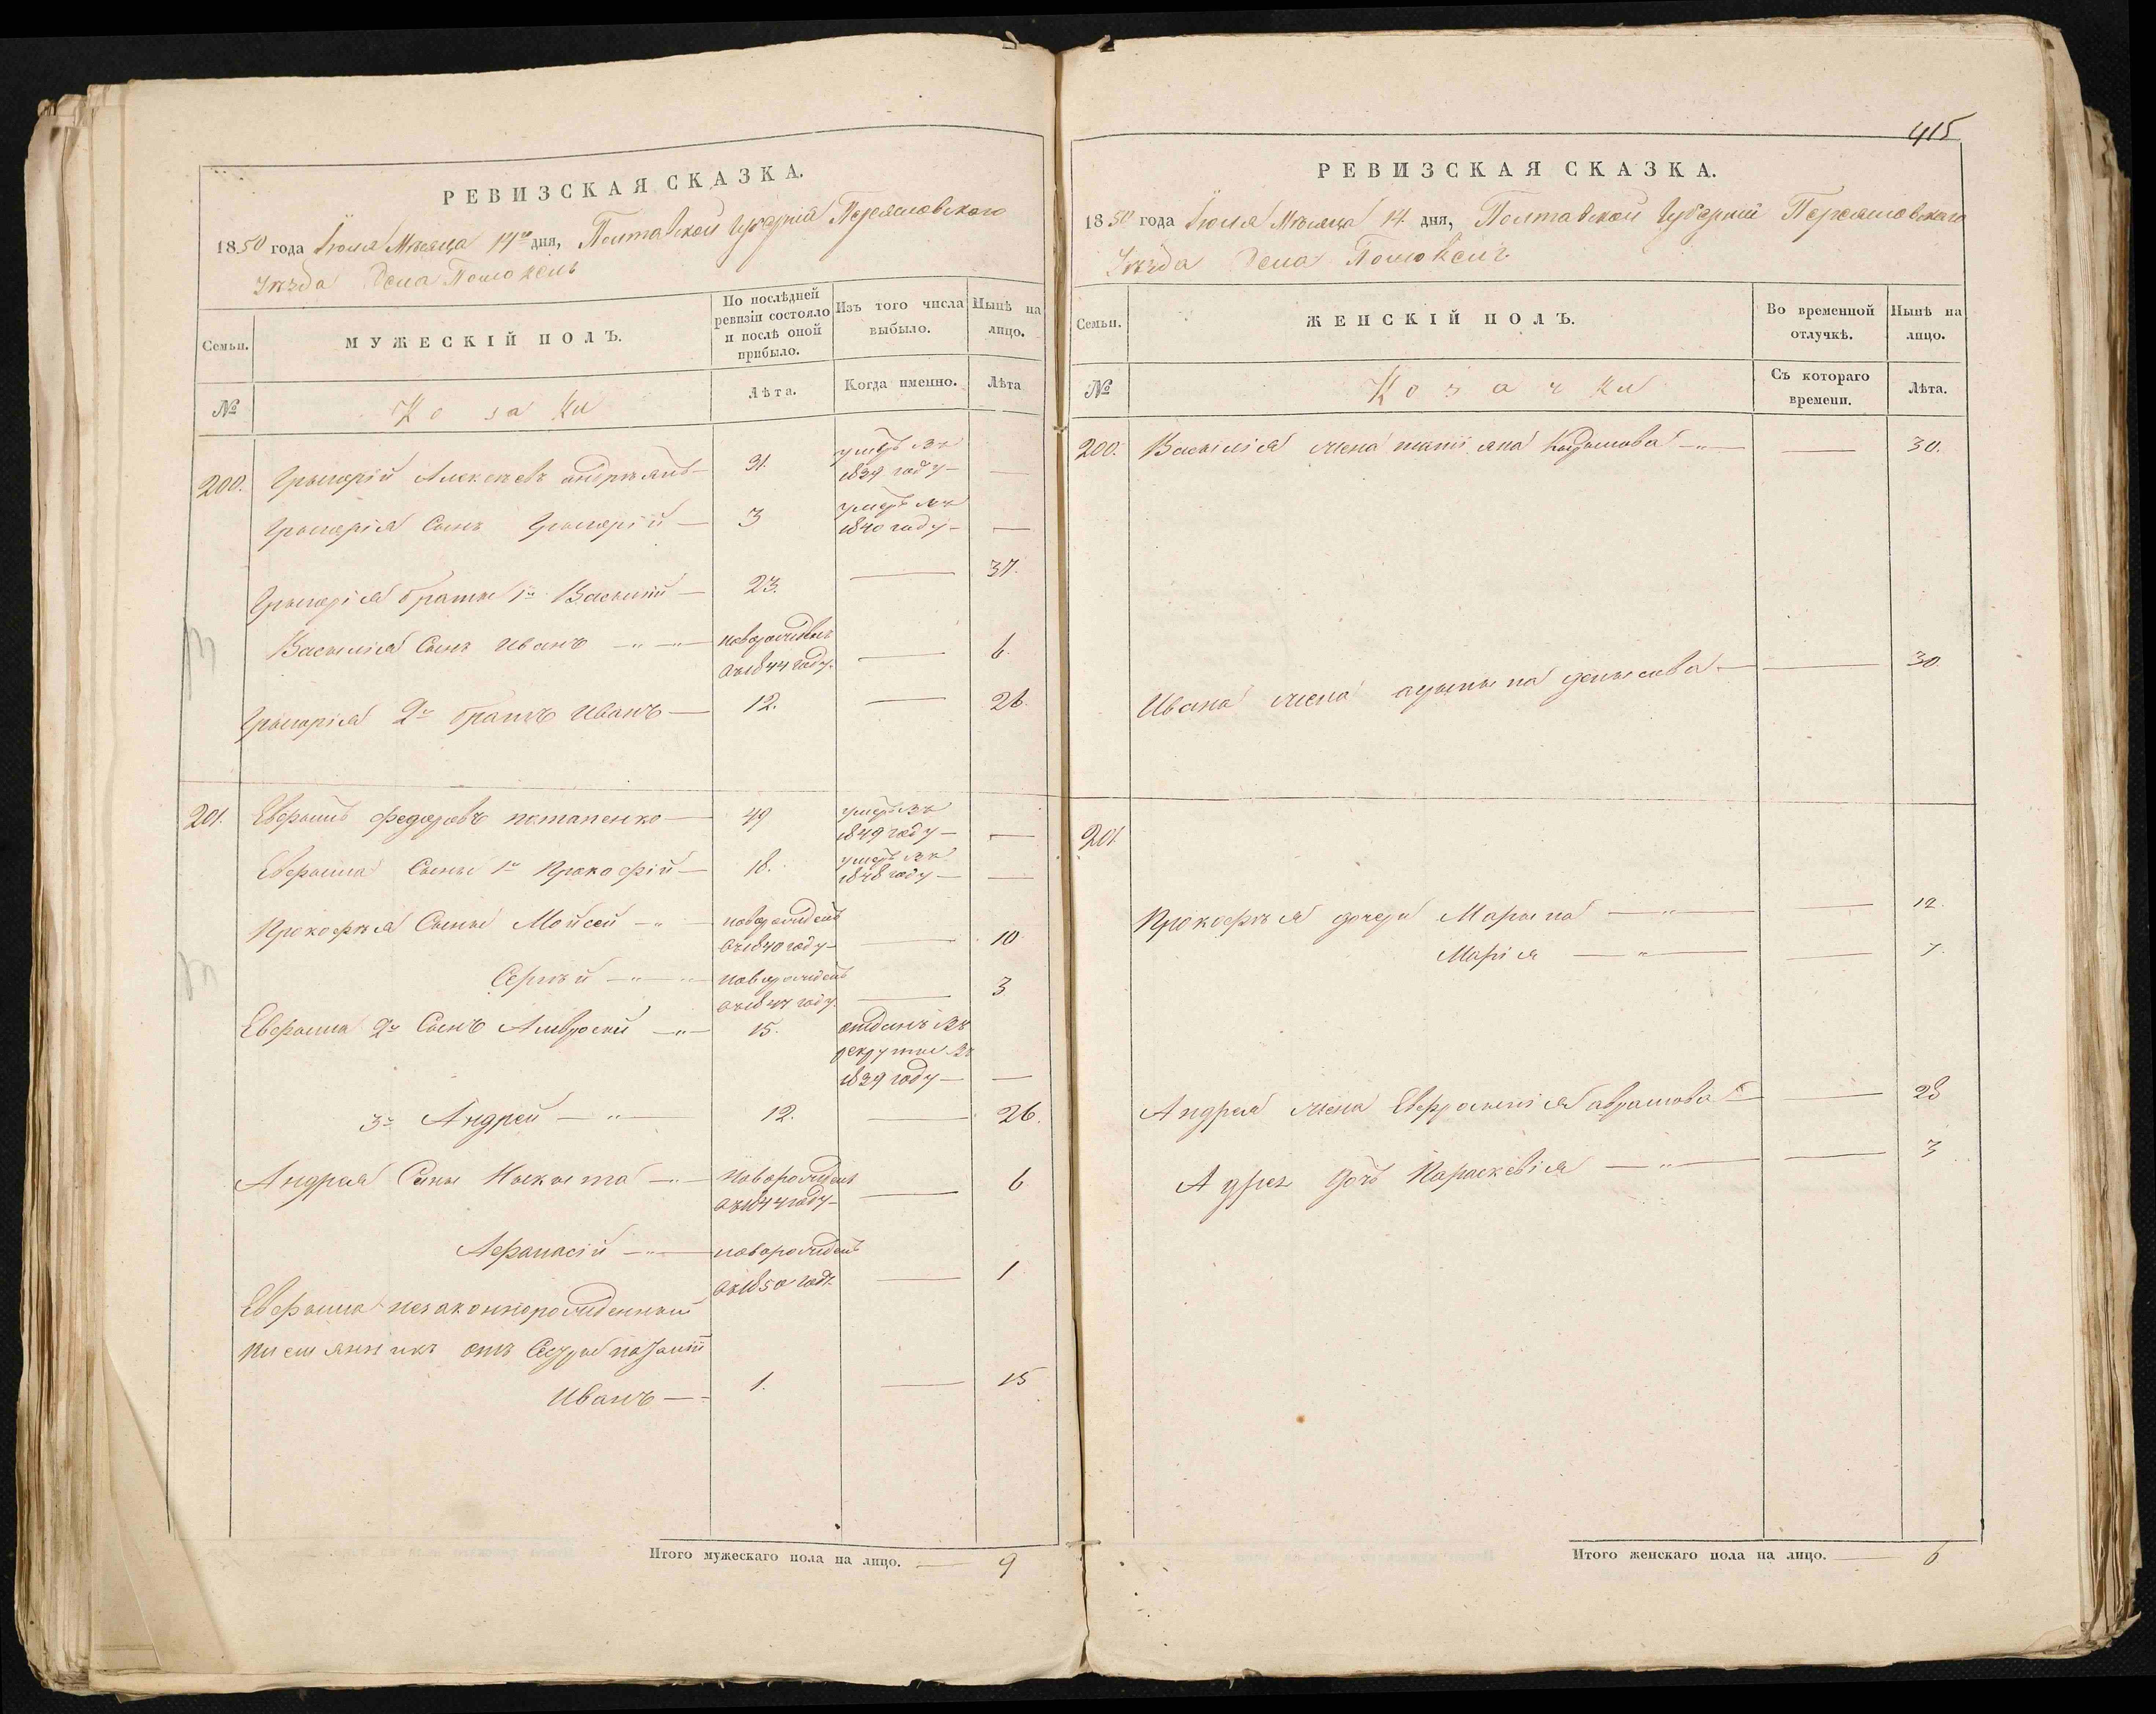 РЕВИЗСКАЯ СКАЗКА.
1850 года Іюля Мѣсяца 14го дня, Полтавской Губерніи Переяславского
Уѣзда Села Помоклей
Семьи.
МУЖЕСКІЙ ПОЛЪ.
По послѣдней ревизіи состояло и послѣ оной прибыло.
Изъ того числа выбыло.
Нынѣ на лицо.
№
Козаки
Лѣта.
Когда именно.
Лѣта
200. Григорій Алексѣевъ 31. умеръ въ 1839 году —
Григорія Сынъ Григорій — 3 умеръ въ 1840 году —
Григорія братья 1й Василій — 23. — 37.
Василія Сынъ Иванъ — новорожденъ въ 1844 году. — 6.
Григорія 2й братъ Иванъ — 12. — 26.
201. Евфимъ Федоровъ потапенко — 49 умеръ въ 1849 году — —
Евфима Сыны 1й Прокофій — 18. умеръ въ 1848 году — —
Прокофія Сыны Мойсей — новорожденъ въ 1840 году — — 10
Сергѣй — новорожденъ въ 1847 году. — 3
Евфима 2й Сынъ Амвросій — 15. отданъ въ рекруты въ 1839 году — —
3й Андрей — 12. — 26.
Андрея Сыны Никита — новорожденъ въ 1844 году — — 6
Афанасій — новорожденъ въ 1850 году. — 1
Евфима незаконнорожденный
племянникъ отъ Сестры
Иванъ — 1. — 15
Итого мужескаго пола на лицо. — 9
415
РЕВИЗСКАЯ СКАЗКА.
1850 года Іюля Мѣсяца 14 дня, Полтавской Губерніи Переяславского
Уѣзда Села Помоклей
Семьи.
ЖЕНСКІЙ ПОЛЪ.
Во временной отлучкѣ.
Нынѣ на лицо.
№
Козачки
Съ котораго времени.
Лѣта.
200. Василія жена — — 30.
Ивана жена — — 30
201
Прокофія дочери Марина — — 12.
Марія — — 7.
Андрея жена Евфросинія аврамова — — 28
Андрея дочь Параскевія — — 3
Итого женскаго пола на лицо. — 6